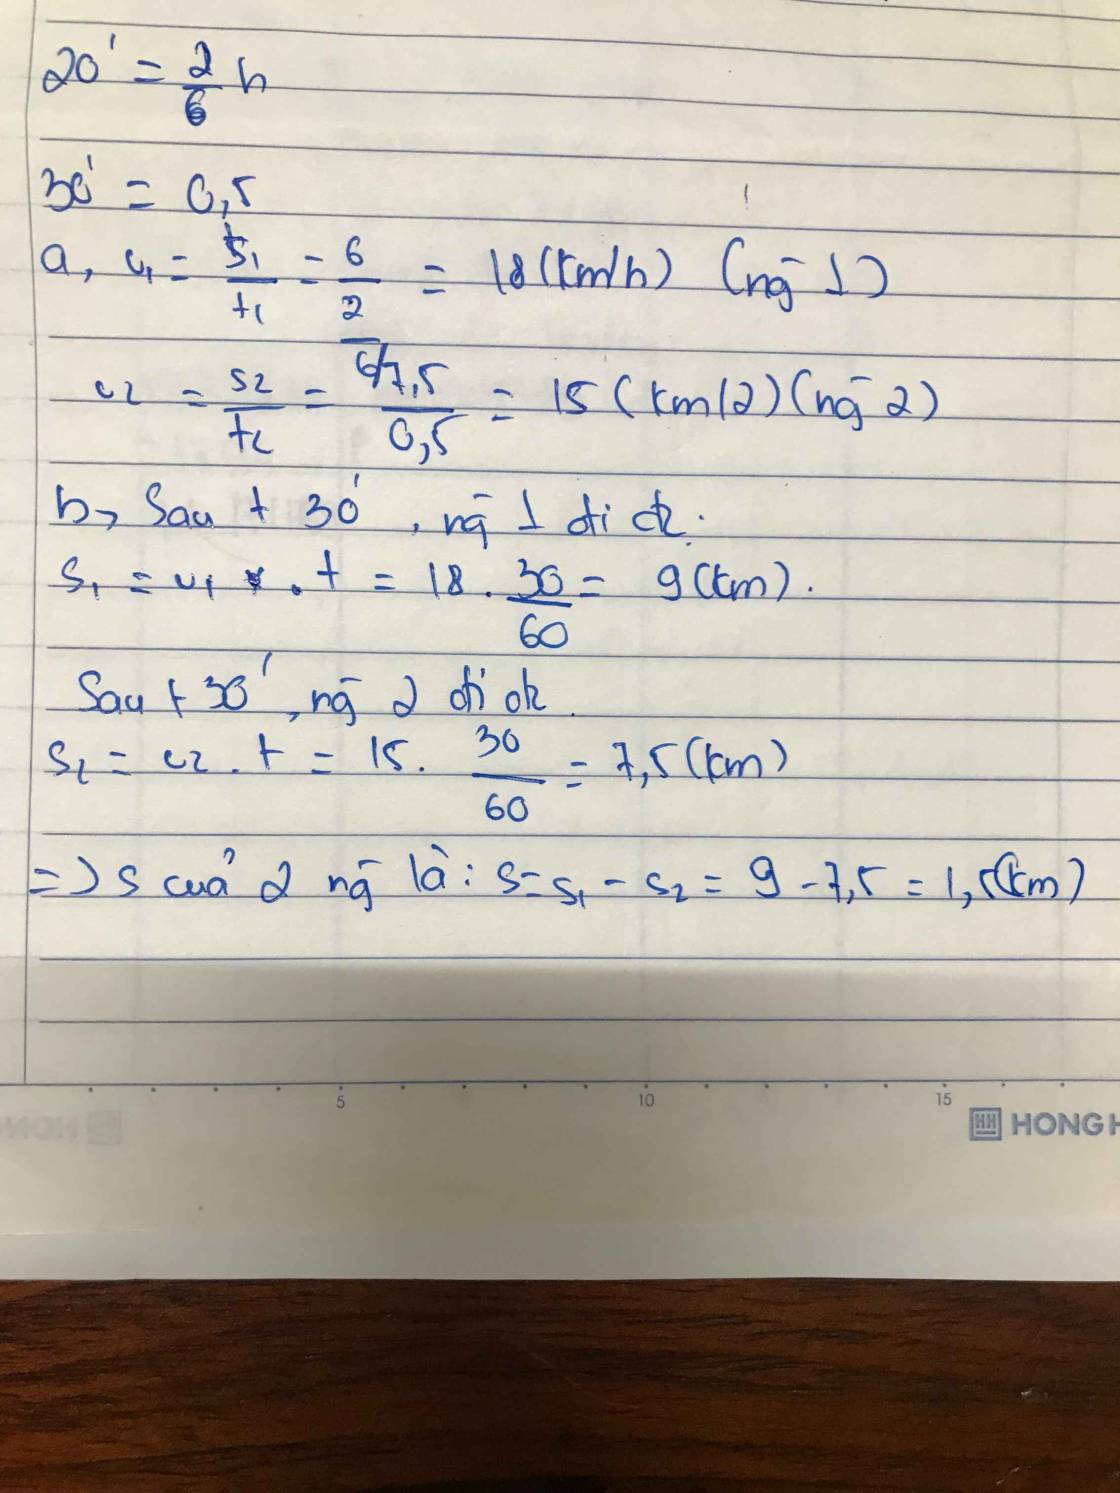 20' = 2/6 h
30' = 0,5
a, v₁ = s₁/t₁ = 6/(2/6) = 18 (km/h) (ng̃ 1)
v₂ = s₂/t₂ = 7,5/0,5 = 15 (km/2) (ng̃ 2)
b, Sau t 30', ng̃ 1 đi đc:
s₁ = v₁ . t = 18 . 30/60 = 9 (km).
Sau t 30', ng̃ 2 đi đc
s₂ = v₂ . t = 15 . 30/60 = 7,5 (km)
=> s của 2 ng̃ là: s = s₁ - s₂ = 9 - 7,5 = 1,5 (km)
5 10 15
HONG H